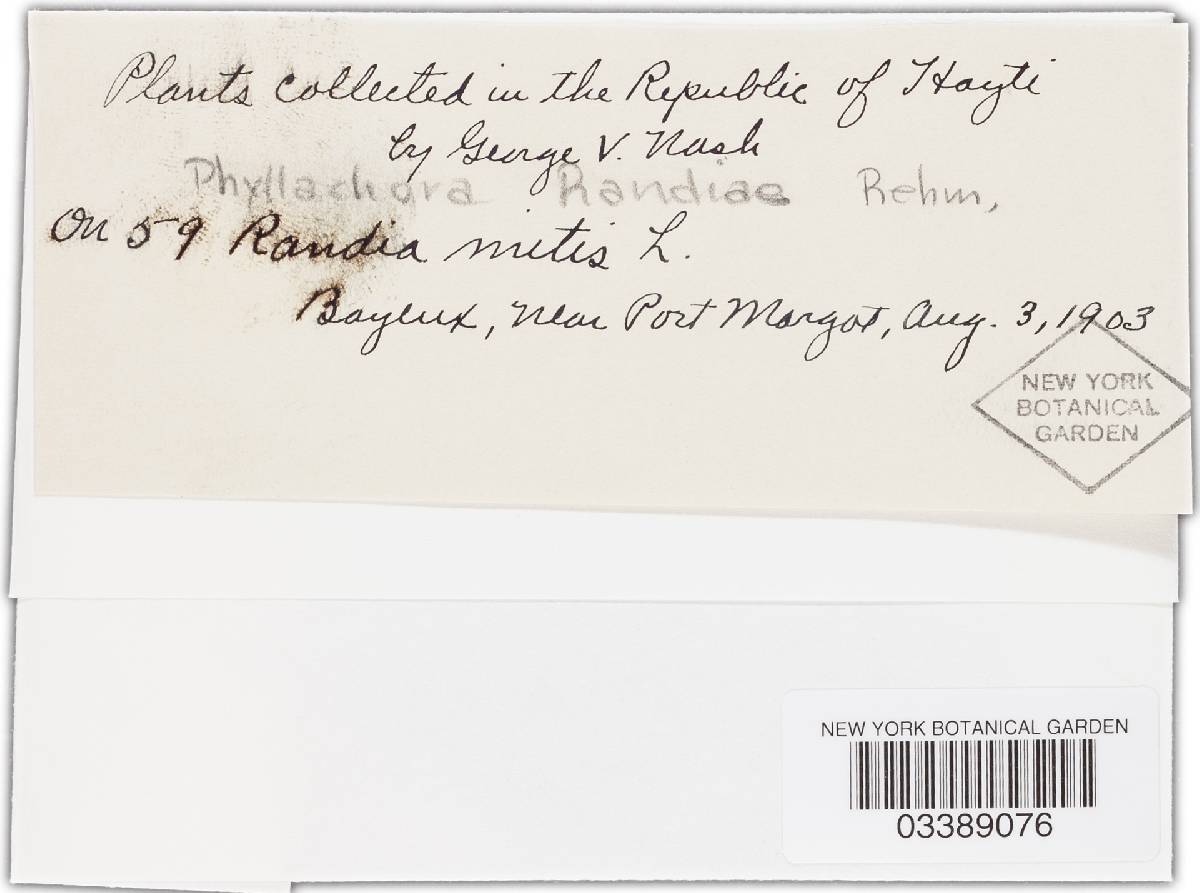 Plants collected in the Republic of Hayti
by George V. Nash
Phyllachora Randiae Rehm,
On 59 Randia mitis L.
Bayeux, near Port Margot, Aug. 3, 1903
NEW YORK
BOTANICAL
GARDEN
NEW YORK BOTANICAL GARDEN
03389076